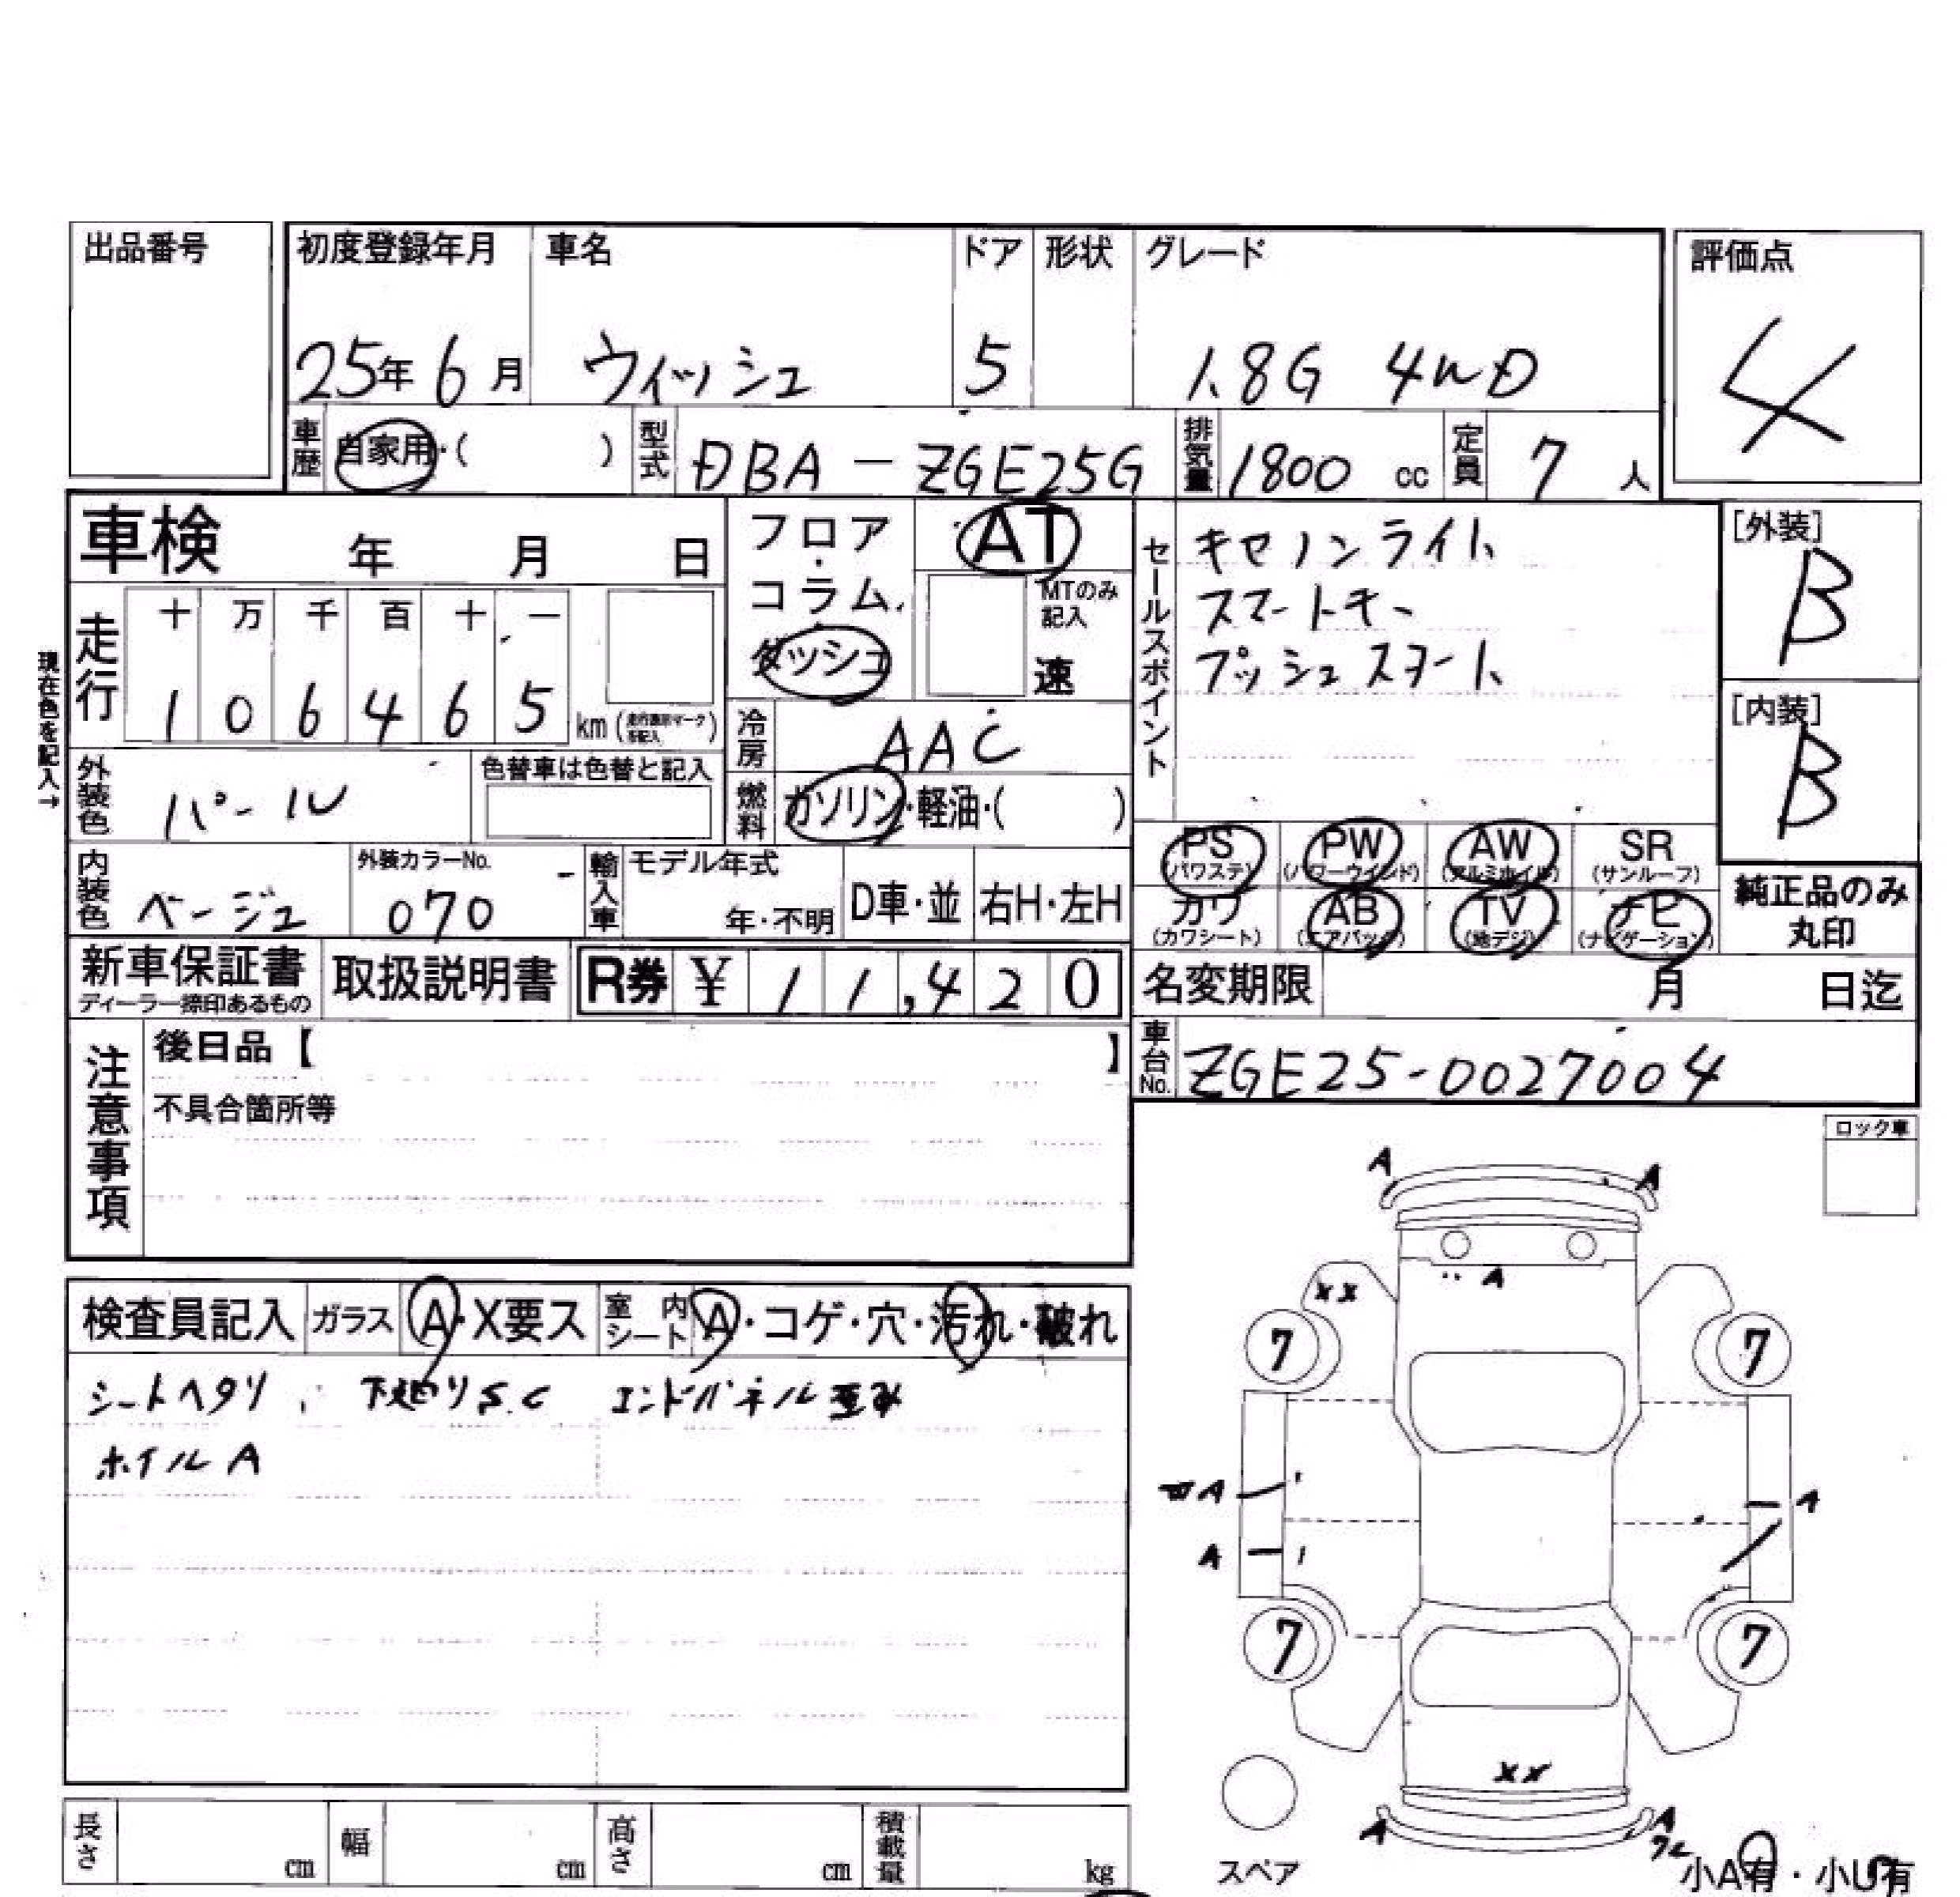 出品番号
初度登録年月 車名 ドア 形状 グレード 評価点
25年 6月 ウィッシュ 5 1.8G 4WD 4
車歴 自家用・( ) 型式 DBA-ZGE25G 排気量 1800 cc 定員 7 人
車検 年 月 日
フロア・コラム・ダッシュ AT
MTのみ記入 速
セールスポイント
キセノンライト
スマートキー
プッシュスタート
[外装] B
[内装] B
現在色を記入→
走行 十 万 千 百 十 一
1 0 6 4 6 5 km
冷房 AAC
外装色 パール 色替車は色替と記入
燃料 ガソリン・軽油・( )
PS (パワステ) PW (パワーウインド) AW (アルミホイル) SR (サンルーフ)
カワ (カワシート) AB (エアバック) TV (地デジ) ナビ (ナビゲーション)
純正品のみ丸印
内装色 ベージュ 外装カラーNo. 070 輸入車 モデル年式 年・不明 D車・並 右H・左H
新車保証書 ディーラー捺印あるもの 取扱説明書 R券 ¥ 11,420
名変期限 月 日迄
車台No. ZGE25-0027004
注意事項
後日品【 】
不具合箇所等
ロック車
検査員記入 ガラス A・X要ス 室内シート A・コゲ・穴・汚れ・破れ
シートヘタリ 下廻りS.C エンドパネル歪み
ホイルA
A A
A
XX
7 7
A A
A
7 7
XX
A A
スペア
小A有・小U有
長さ cm 幅 cm 高さ cm 積載量 kg